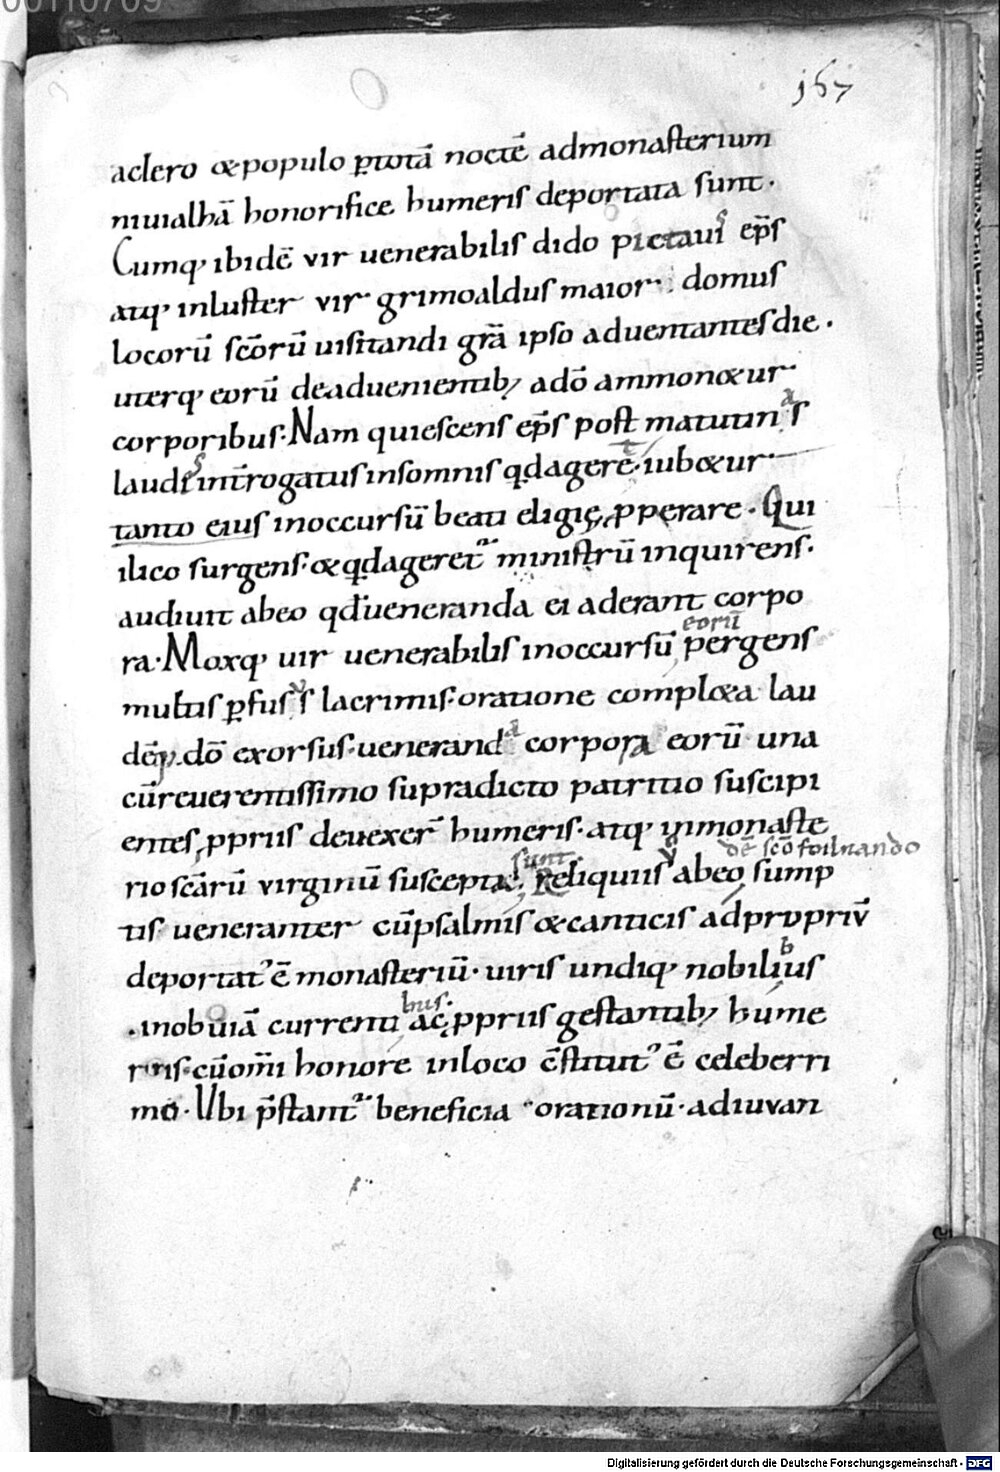 00110709
157
aclero & populo ꝑtotā noctē admonasterium
niuialhā honorifice humeris deportata sunt.
Cumq; ibidē vir uenerabilis dido pictauis ep̄s
atq; inluster vir grimoaldus maior domus
locorū scōrū uisitandi gr̄a ipso aduentantes die.
uterq; eorū deaduenientib; adō ammon&ur
corporibus. Nam quiescens ep̄s post matutinas
laudes int̄rogatus insomnis qd̄ ageret. iub&ur
tanto eius inoccursū beati eligię ꝓperare. Qui
ilico surgens. & qd̄ ageret ministrū inquirens.
audiuit abeo qd̄ ueneranda ei aderant corpo
ra. Moxq; uir uenerabilis inoccursū eorū pergens
multis ꝑfusus lacrimis. oratione compl&a lau
dēq; dō exorsus. ueneranda corpora eorū una
cū reuerentissimo supradicto patritio suscipi
entes, ꝓpriis deuexer̄ humeris. atq; inmonaste
dē scō foilnando
rio scārū virginū suscepta sunt. Reliquiis abeo sump
tis ueneranter cū psalmis & canticis adpropriū
deportat' ē monasteriū. uiris undiq; nobilibus
inobuiā currentibus. ac ꝓpriis gestantib; hume
ris. cū om̄i honore inloco c̄stitut' ē celeberri
mo. Ubi p̄stant beneficia orationū. adiuvan
Digitalisierung gefördert durch die Deutsche Forschungsgemeinschaft - DFG